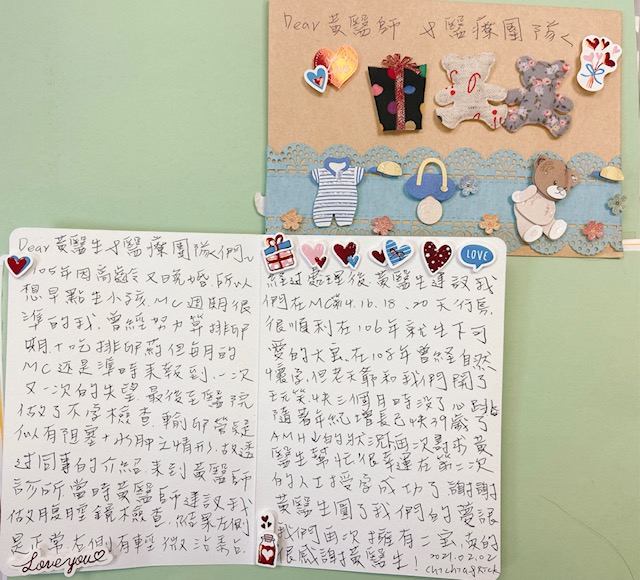 Dear 黃醫師 & 醫療團隊
Dear黃醫生&醫療團隊們~
105年因高齡又晚婚.所以
想早點生小孩.MC週期很
準的我.曾經努力算排卵
期.+吃排卵藥但每月的
MC還是準時來報到.一次
又一次的失望.最後至醫院
做了不孕檢查.輸卵管疑
似有阻塞+水腫之情形.故透
過同事的介紹.來到黃醫師
診所.當時黃醫師建議我
做腹腔鏡檢查.結果左側
是正常.右側有輕微沾黏
Love you
LOVE
經過處理後.黃醫生建議我
們在MC第14.16.18.20天行房.
很順利在106年就生下可
愛的大寶.在108年曾經自然
懷孕.但老天爺和我們開了
玩笑.快三個月時沒了心跳
隨著年紀增長已快39歲了
AMH↓的狀況.再次尋求黃
醫生幫忙.很幸運在第二次
的人工授孕成功了.謝謝
黃醫生圓了我們的夢.讓
我們再次擁有二寶.真的
很感謝黃醫生!
2021.02.02